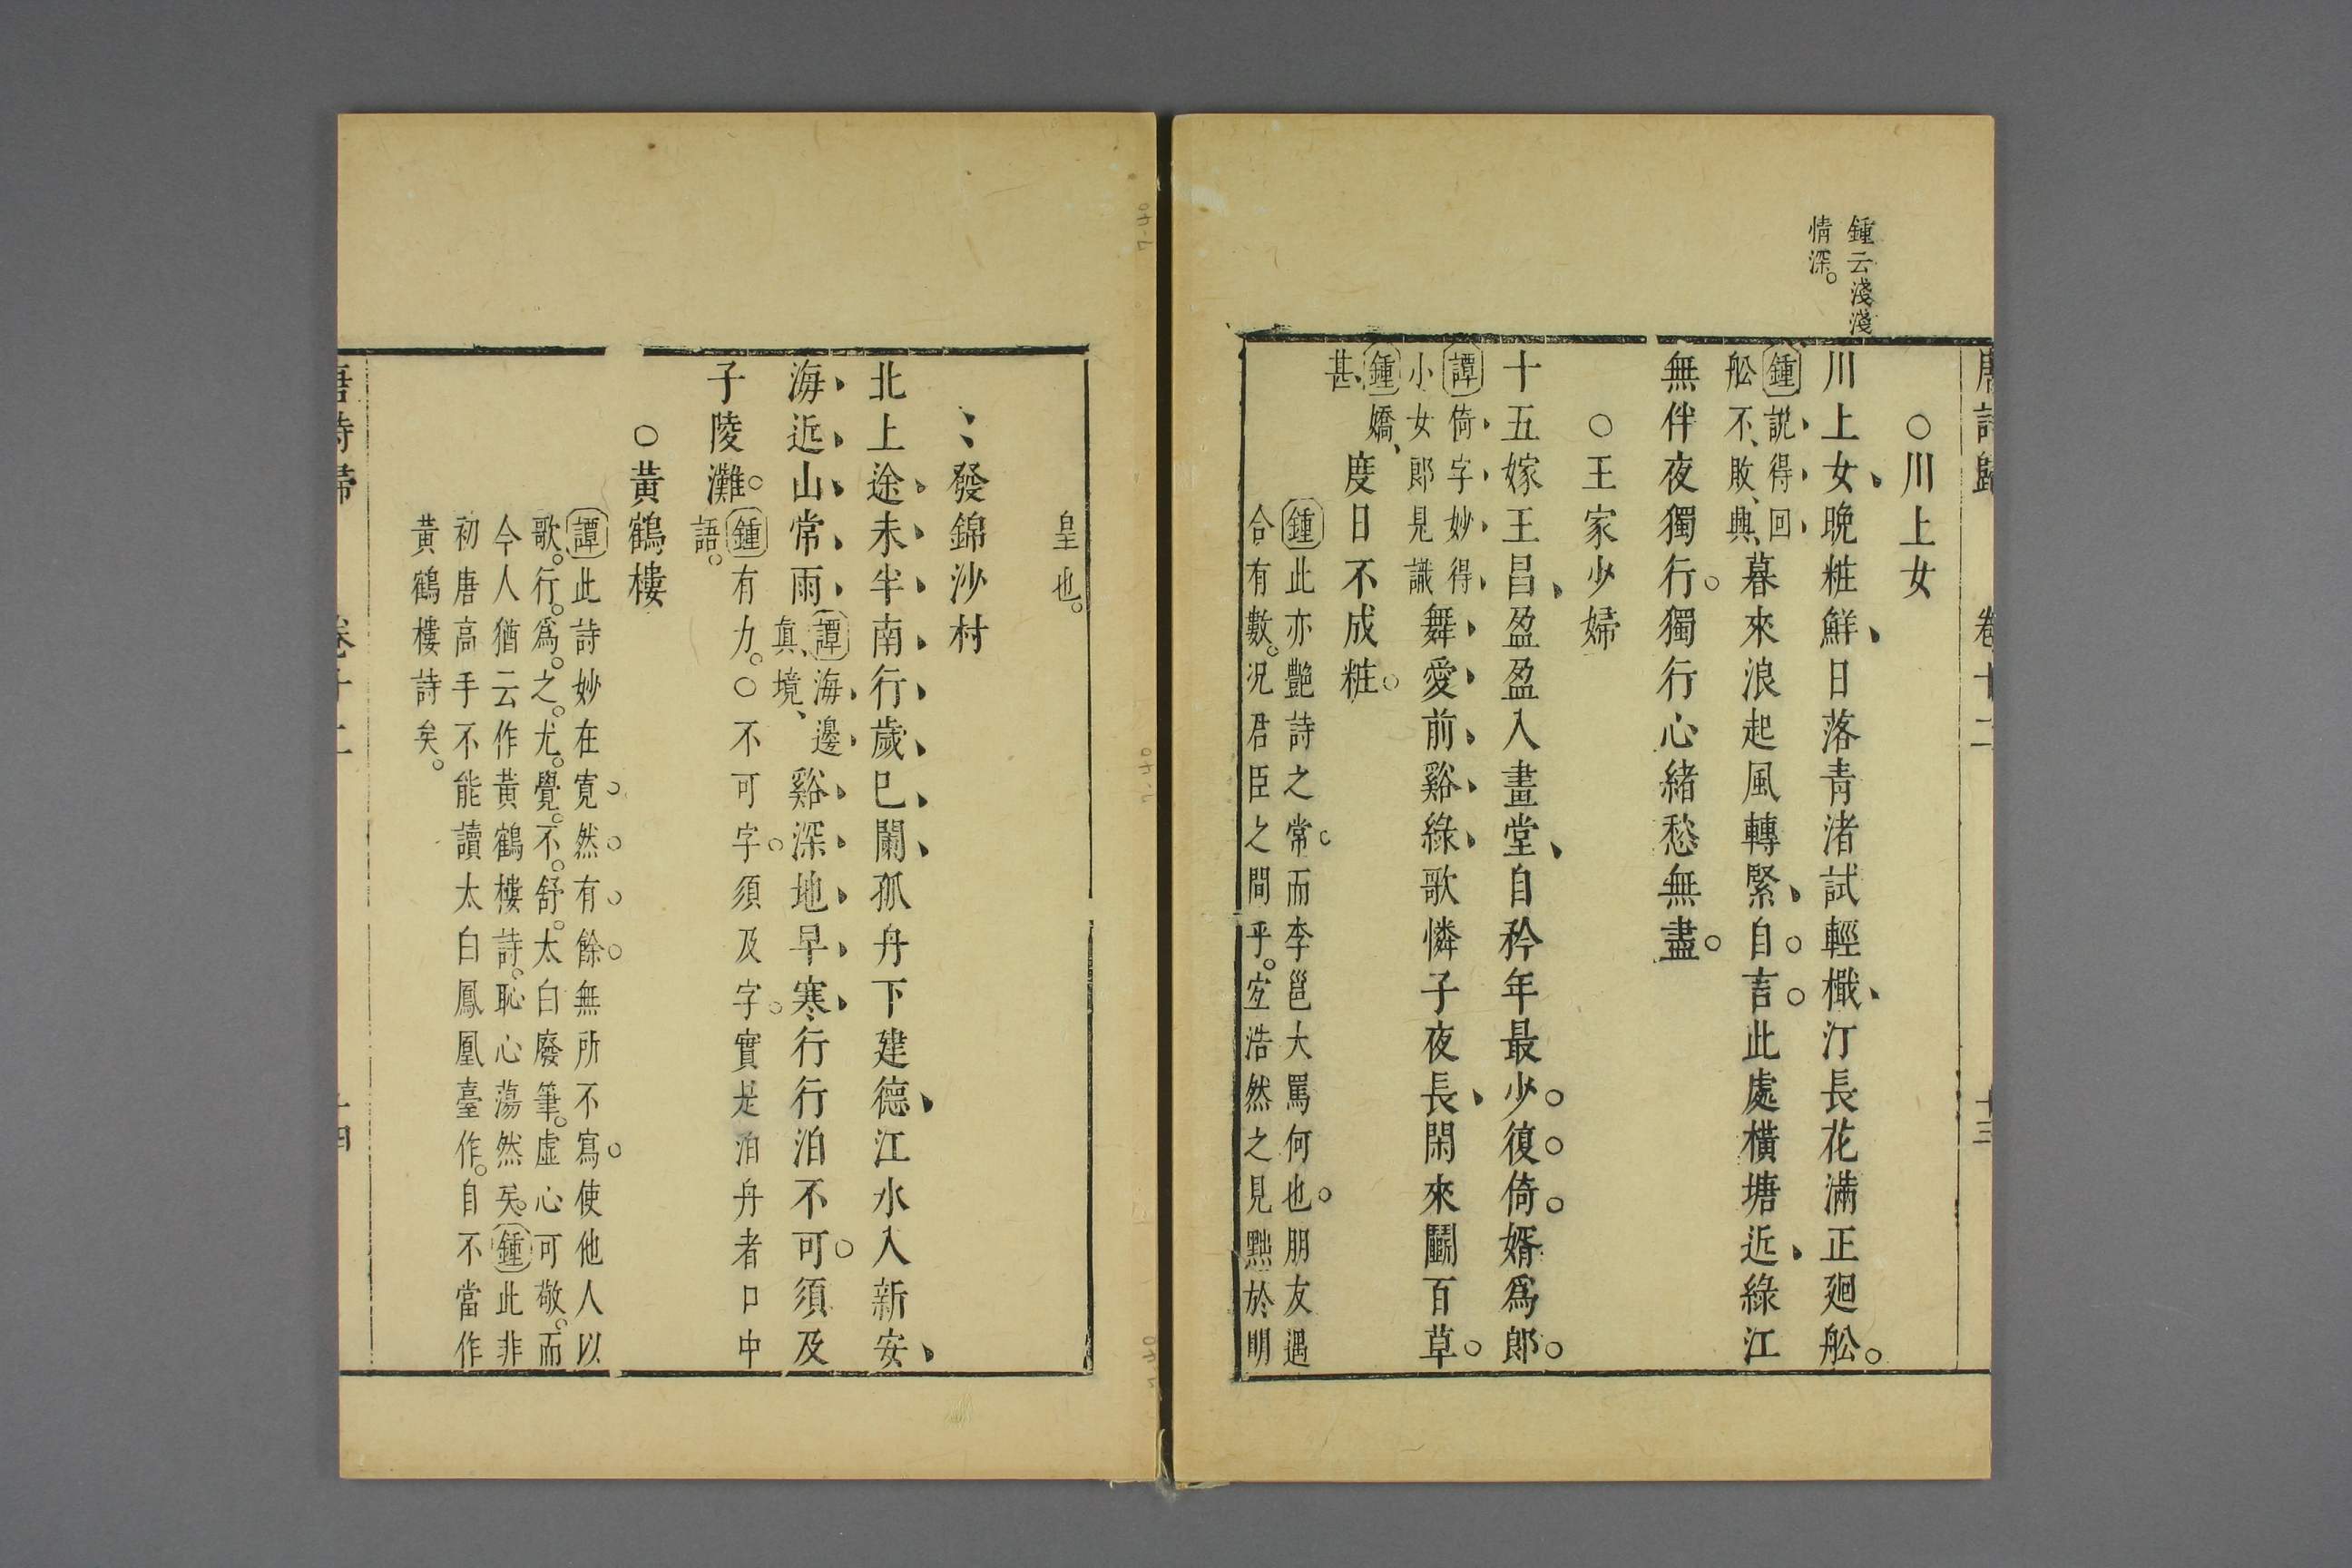 唐詩歸 卷十二 十三
鍾云淺淺
情深。
○川上女
川上女、晚粧鮮、日落青渚試輕檝、汀長花滿正廻舩。
鍾說得回
舩不敗興
暮來浪起風轉緊、自言此處橫塘近、綠江
無伴夜獨行。獨行心緒愁無盡。
○王家少婦
十五嫁王昌、盈盈入畫堂、自矜年最少。復倚婿爲郎。
譚倚字妙得
小女郎見識
舞愛前谿綠、歌憐子夜長、閑來鬭百草。
鍾嬌
甚
度日不成粧。
鍾此亦艶詩之常。而李邕大罵何也。朋友遇
合有數。況君臣之間乎。宐浩然之見黜於明
皇也。
發錦沙村
北上途未半南行歲巳闌孤舟下建德、江水入新安、
海近山常雨
譚海邊
真境、
谿深地早寒、行行泊不可須及
子陵灘。
鍾有力。○不可字。須及字。實是泊舟者口中
語。
○黃鶴樓
譚此詩妙在寛然有餘無所不寫。使他人以
歌行爲之。尤覺不舒。太白廢筆。虛心可敬。而
今人猶云作黃鶴樓詩。恥心蕩然矣。鍾此非
初唐高手不能讀太白鳳凰臺作。自不當作
黃鶴樓詩矣。